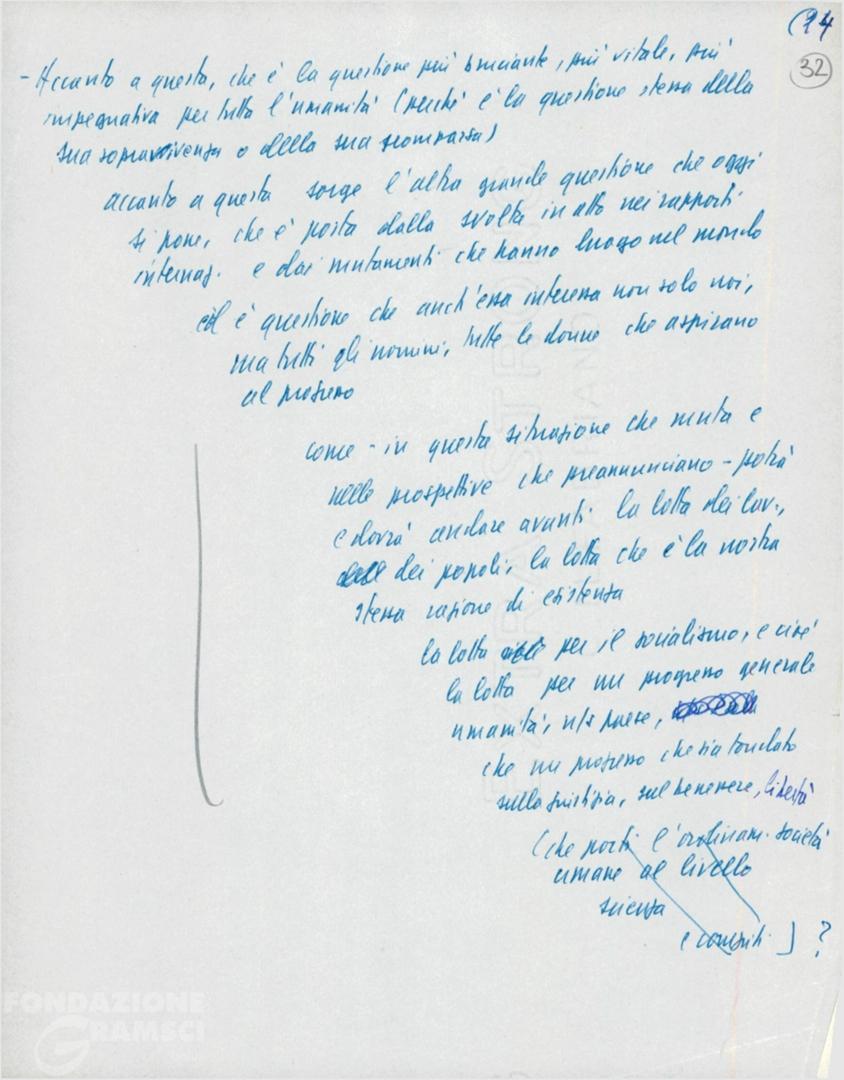 (14
32
- Accanto a questa, che è la questione più bruciante, più vitale, più
impegnativa per tutta l'umanità (perché è la questione stessa della
sua sopravvivenza o della sua scomparsa)
accanto a questa sorge l'altra grande questione che oggi
si pone, che è posta dalla svolta in atto nei rapporti
internaz. e dai mutamenti che hanno luogo nel mondo
ed è questione che anch'essa interessa non solo noi,
ma tutti gli uomini, tutte le donne che aspirano
al progresso
come - in questa situazione che muta e
nelle prospettive che preannunciano - potrà
e dovrà andare avanti la lotta dei lav.,
dei popoli, la lotta che è la nostra
stessa ragione di esistenza
la lotta per il socialismo, e cioè
la lotta per un progresso generale
umanità, n/s paese,
che un progresso che sia fondato
sulla giustizia, sul benessere, libertà
(che porti l'ordinam. società
umane al livello
scienza
e ) ?
FONDAZIONE
GRAMSCI